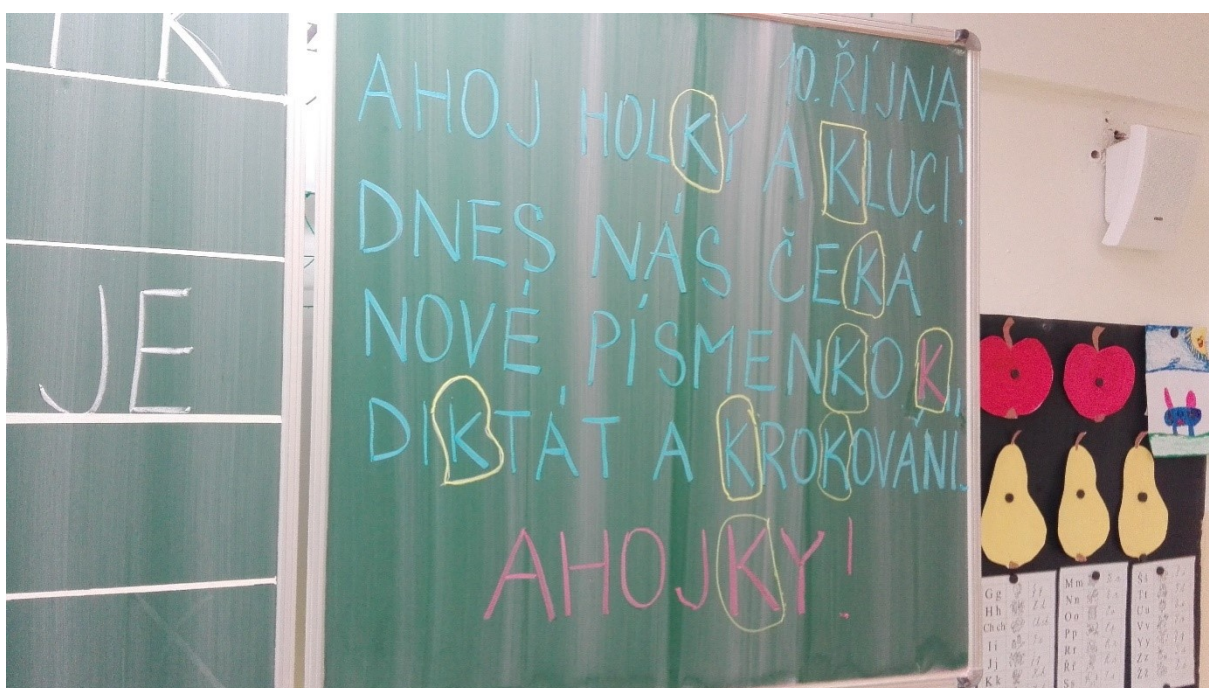 K
JE
10. ŘÍJNA
AHOJ HOLKY A KLUCI!
DNES NÁS ČEKÁ
NOVÉ PÍSMENKO K,
DIKTÁT A KROKOVÁNÍ.
AHOJKY!
Gg
Hh
Ch ch
Ii
Jj
Kk
Mm
Nn
Oo
Pp
Rr
Řř
Ss
Šš
Tt
Uu
Vv
Yy
Zz
Žž